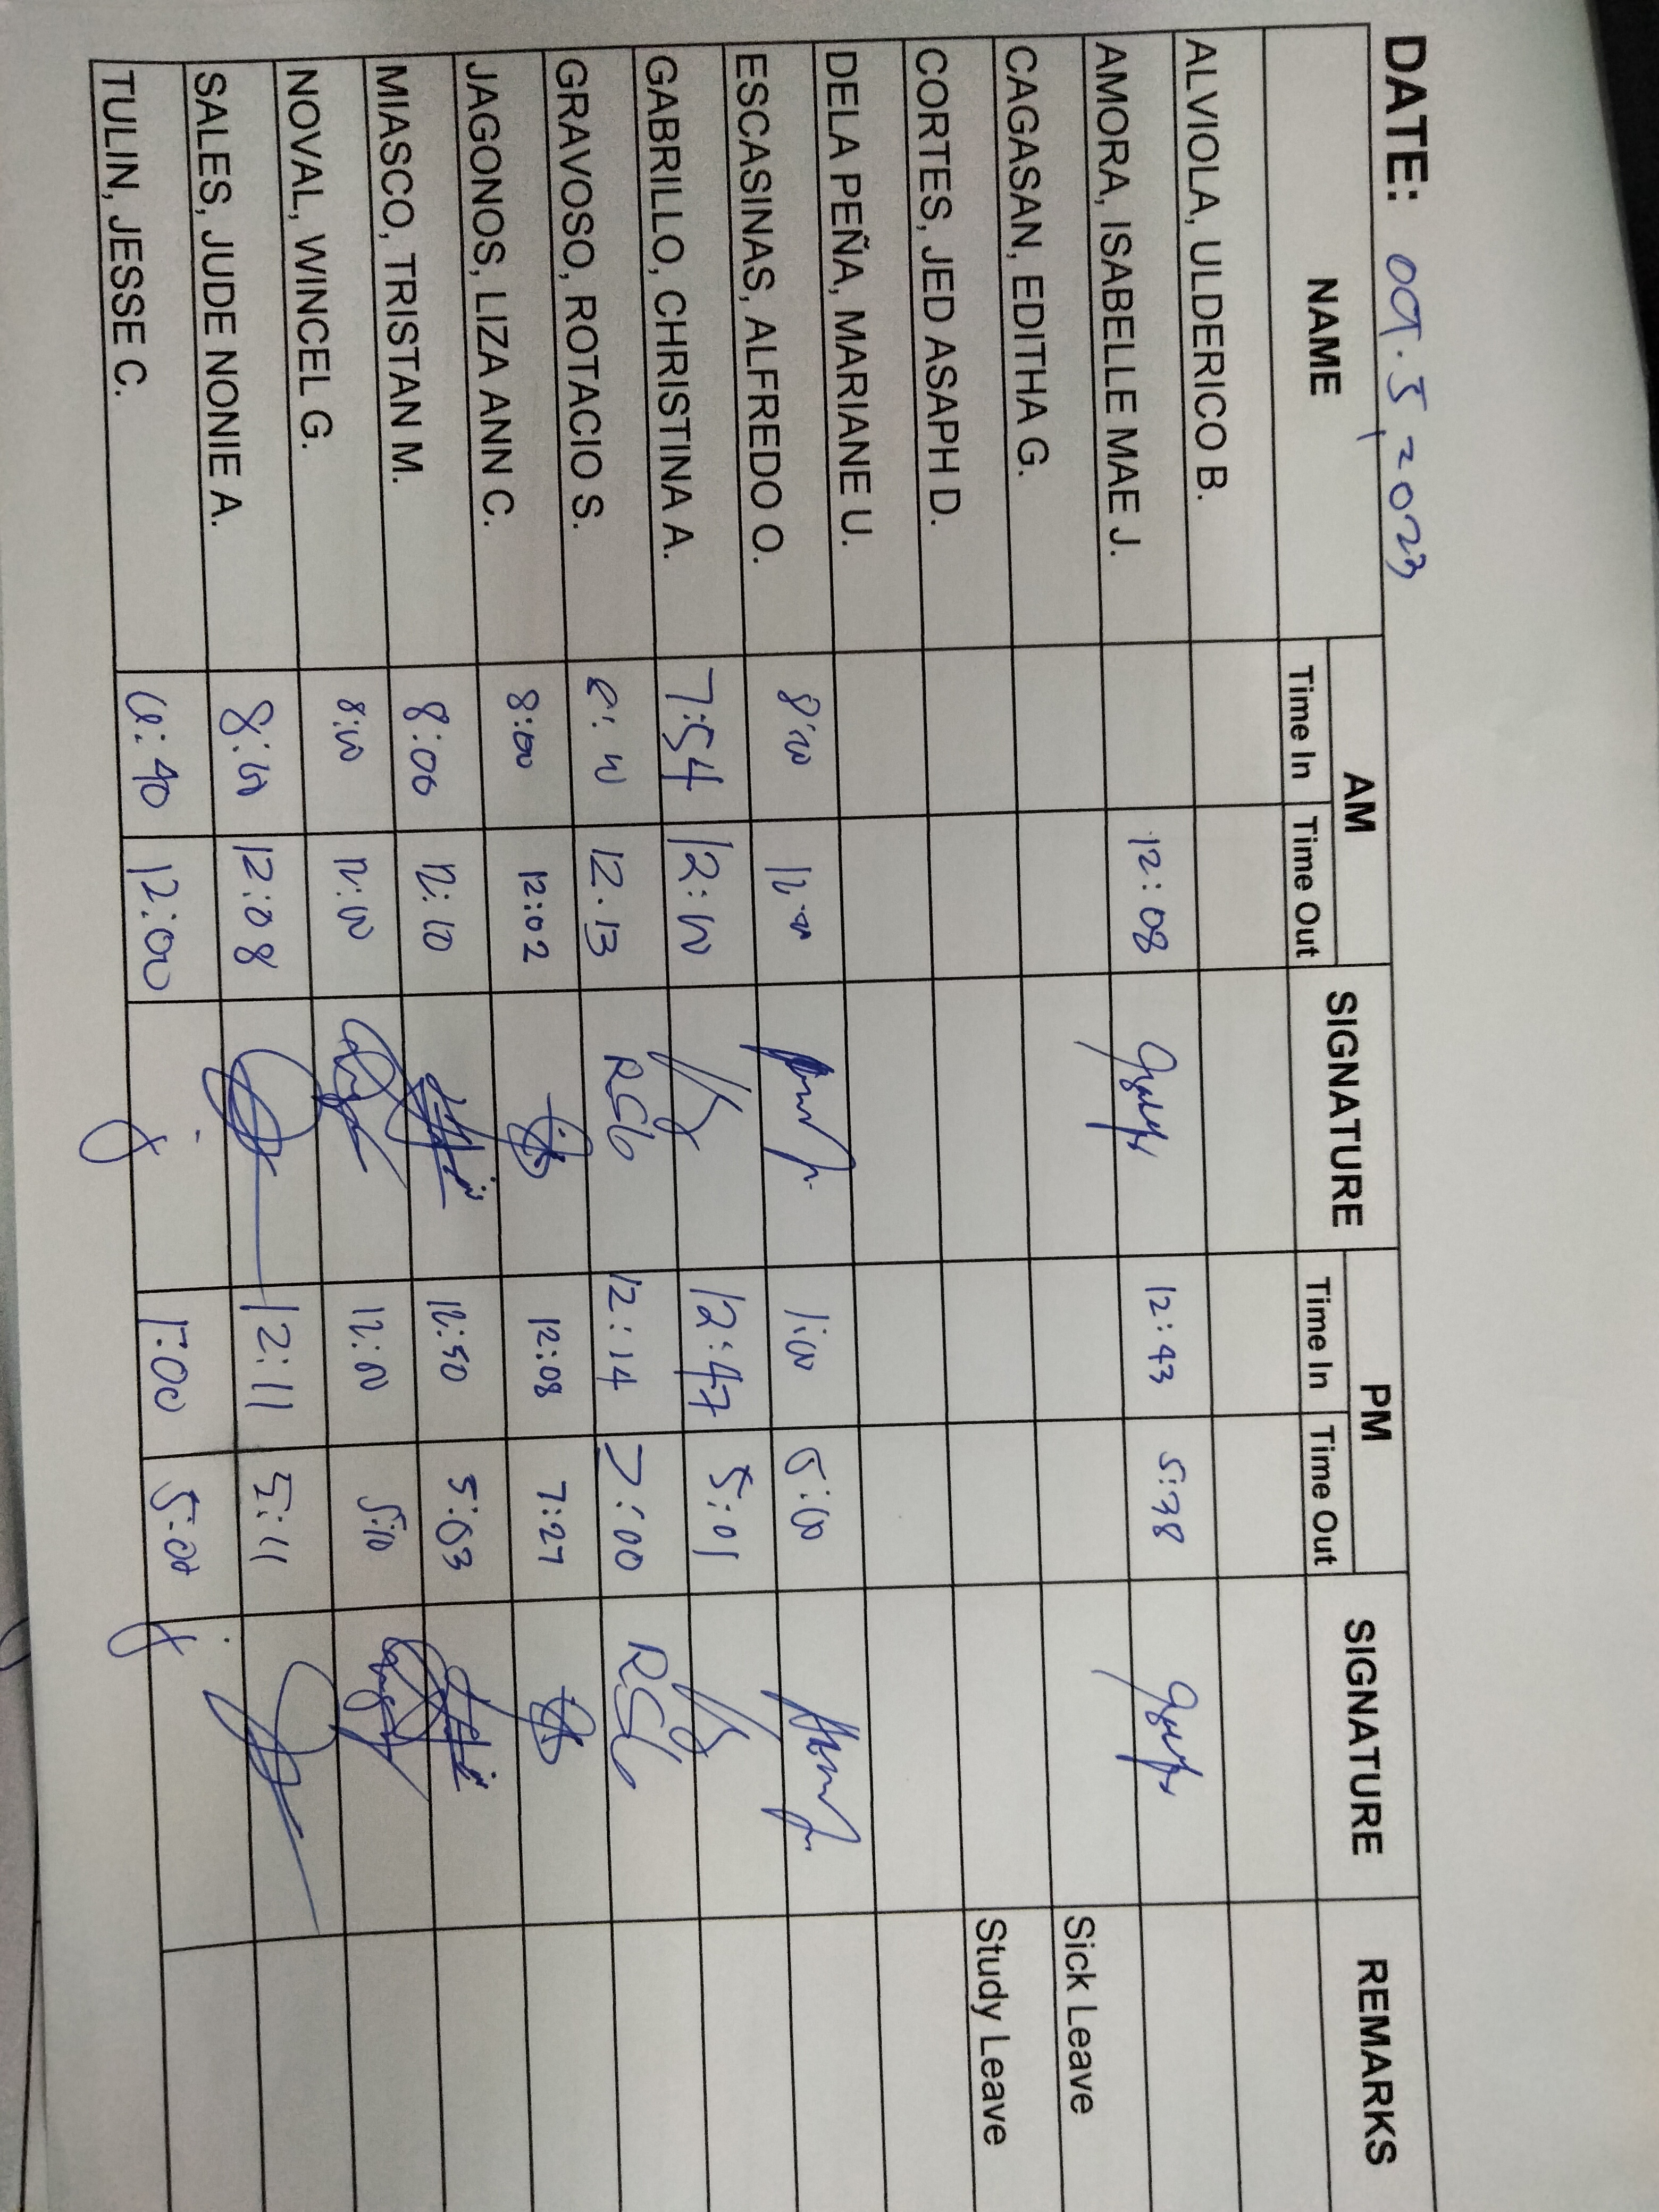 DATE: 09.5,2023
NAME AM SIGNATURE PM SIGNATURE REMARKS
Time In Time Out Time In Time Out
ALVIOLA, ULDERICO B.
AMORA, ISABELLE MAE J. 12:08 12:43 5:38
CAGASAN, EDITHA G. Sick Leave
CORTES, JED ASAPH D. Study Leave
DELA PEÑA, MARIANE U.
ESCASINAS, ALFREDO O. 8:00 1:00 5:00
GABRILLO, CHRISTINA A. 7:54 12:00 12:47 5:01
GRAVOSO, ROTACIO S. 12.13 RSG 12:14 7:00 RSG
JAGONOS, LIZA ANN C. 8:00 12:02 12:08 7:27
MIASCO, TRISTAN M. 8:00 12:10 12:50 5:03
NOVAL, WINCEL G. 8:00 12:00 12:00 5:10
SALES, JUDE NONIE A. 12:08 12:11 5:11
TULIN, JESSE C. 6:40 12:00 1:00 5:00